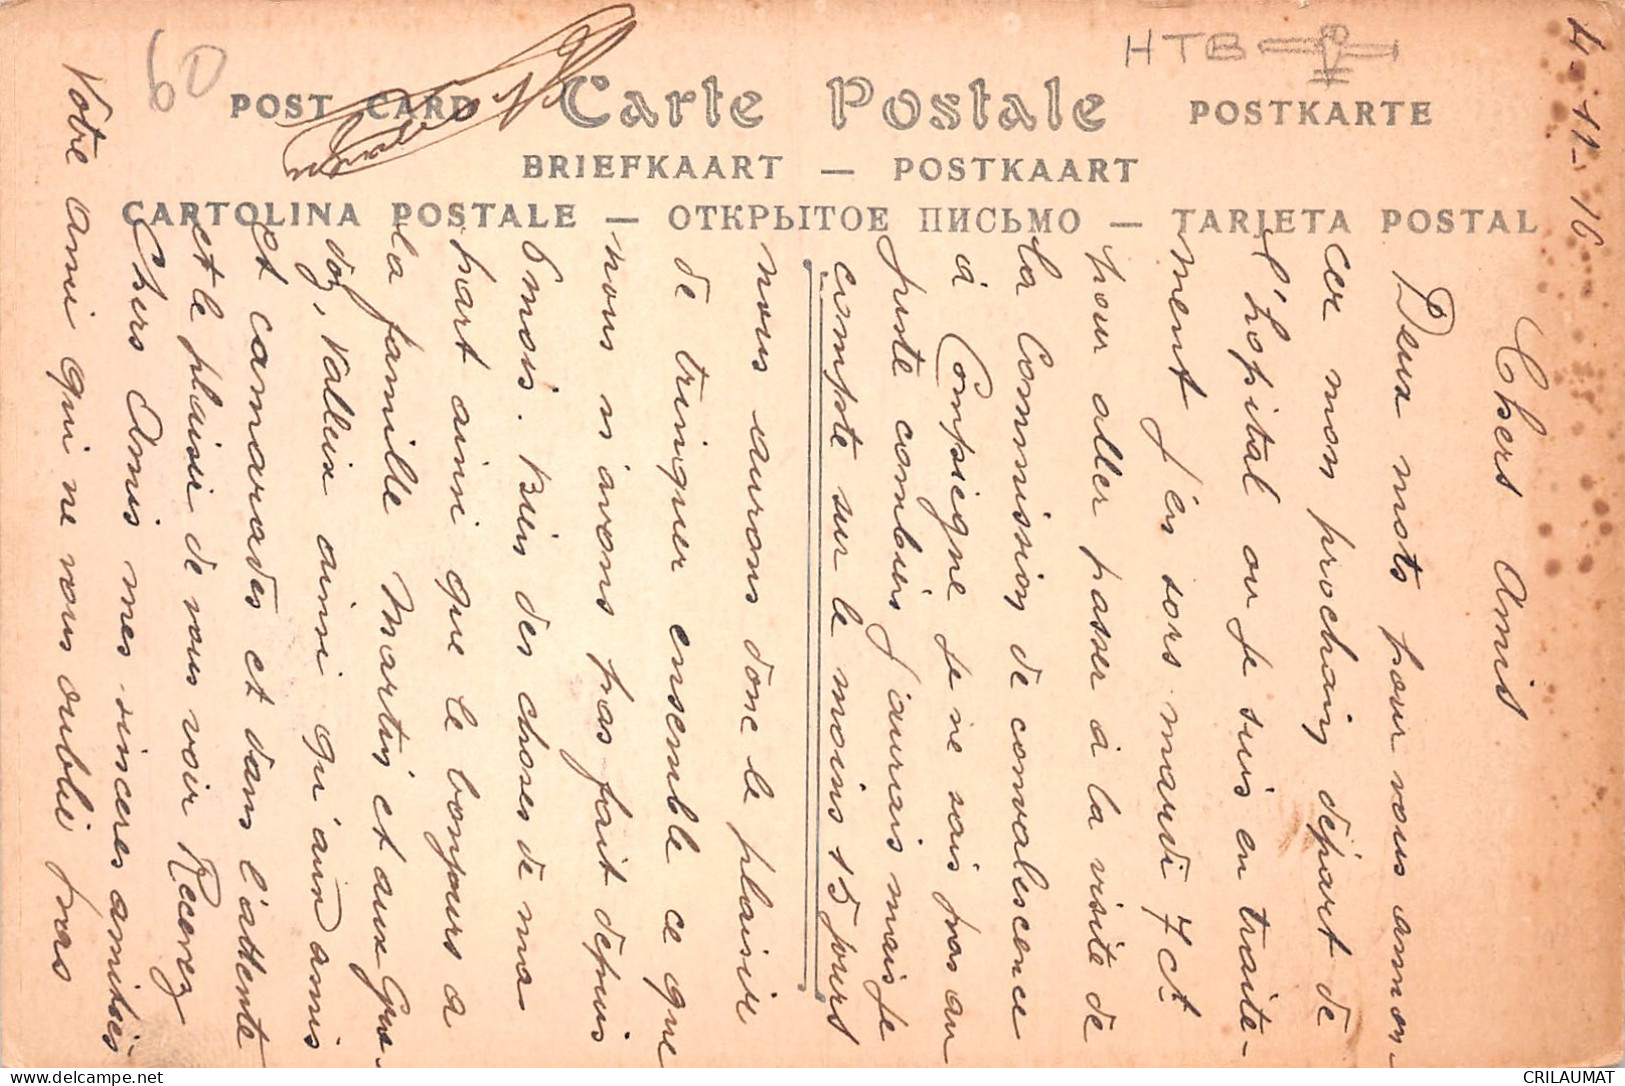 60
HTB
POST CARD
Carte Postale
POSTKARTE
BRIEFKAART — POSTKAART
CARTOLINA POSTALE — ОТКРЫТОЕ ПИСЬМО — TARJETA POSTAL
4-11-16
Chers Amis
Deux mots pour vous annon-
cer mon prochain départ de
l'hopital ou je suis en traite-
ment j'en sors mardi 7 ct
pour aller passer à la visite de
la Commission de convalescence
à Compiegne je ne sais pas au
juste combien j'aurais mais je
compte sur le moins 15 jours
nous aurons donc le plaisir
de trinquer ensemble ce que
nous n'avons pas fait depuis
6 mois. Bien des choses de ma
part ainsi que le bonjours a
la famille Martin et aux
Vallein ainsi qu'aux amis
et camarades et dans l'attente
et le plaisir de vous voir Recevez
Chers Amis mes sinceres amitiés
Votre ami qui ne vous oublie pas
CRILAUMAT